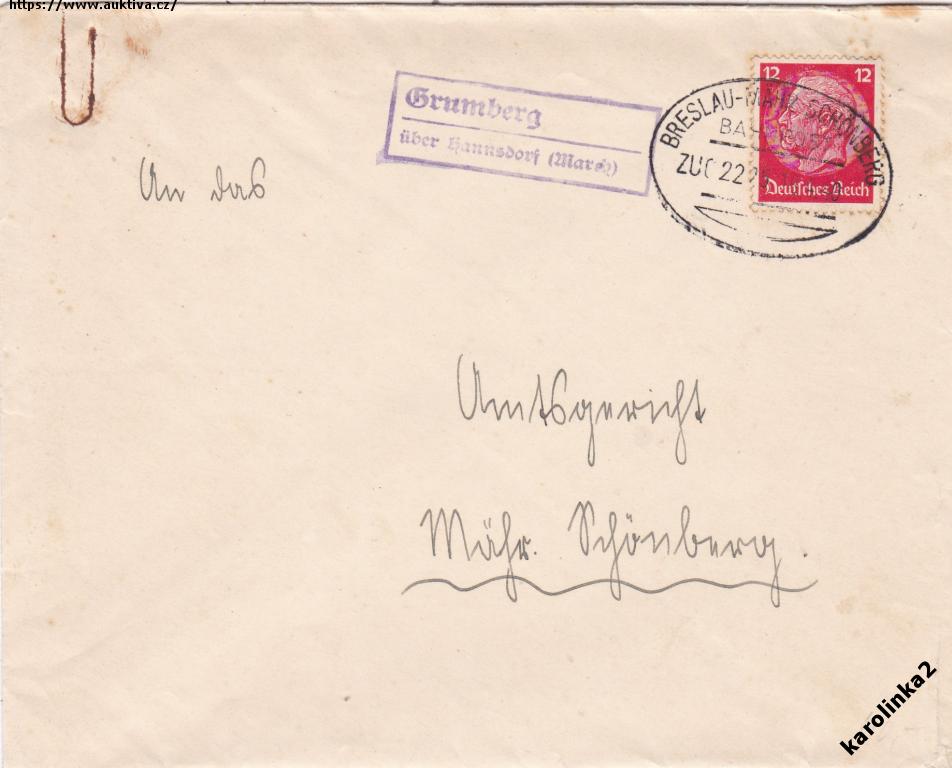 https://www.auktiva.cz/
Grumberg
über Hannsdorf (March)
12 12
Deutsches Reich
BRESLAU-MÄHR SCHÖNBERG
ZUG 222
An das
Amtsgericht
Mähr. Schönberg.
karolinka2